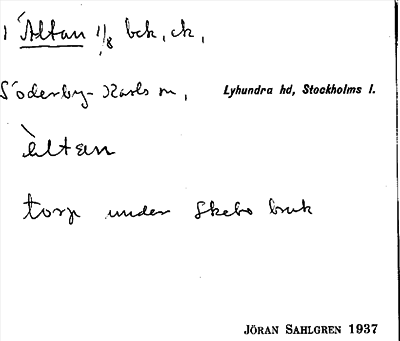 1 Ältan 1/8 bck, ck,
Söderby-Karls sn, Lyhundra hd, Stockholms l.
èltan
torp under Skebo bruk
JÖRAN SAHLGREN 1937